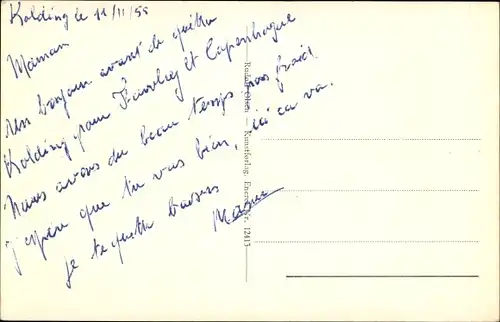 Kolding le 11/11/55
Maman
Un bonjour avant de quitter
Kolding pour et Copenhague
Nous avons du beau temps pas froid
j'espère que tu vas bien, ici ça va.
je te quitte baisers
Rudolf Olsen — Kunstforlag. Eneret Nr. 12413